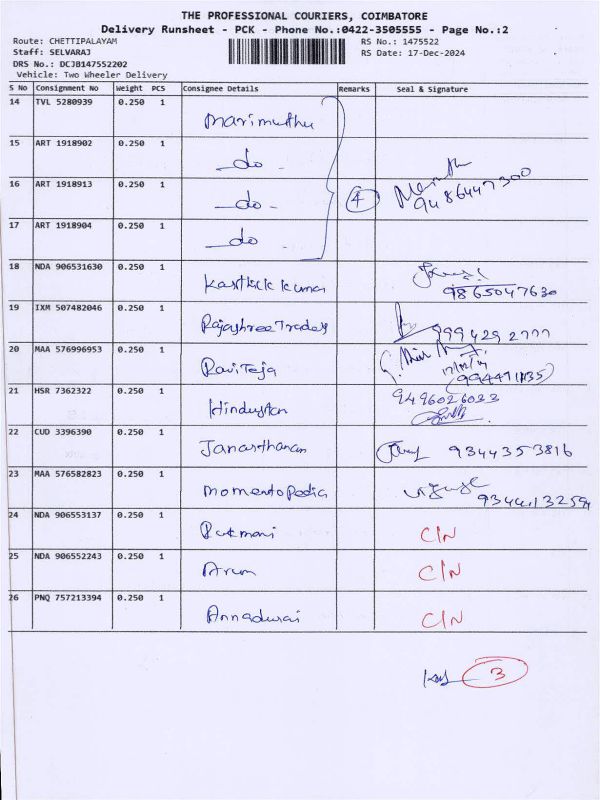 THE PROFESSIONAL COURIERS, COIMBATORE
Delivery Runsheet - PCK - Phone No.:0422-3505555 - Page No.:2
Route: CHETTIPALAYAM RS No.: 1475522
Staff: SELVARAJ RS Date: 17-Dec-2024
DRS No.: DCJB147552202
Vehicle: Two Wheeler Delivery
S No Consignment No Weight PCS Consignee Details Remarks Seal & Signature
14 TVL 5280939 0.250 1 Marimuthu
15 ART 1918902 0.250 1 do
16 ART 1918913 0.250 1 do 4 9486447300
17 ART 1918904 0.250 1 do
18 NDA 906531630 0.250 1 Karthick kumar 9865047630
19 IXM 507482046 0.250 1 Rajashree Traders 999429 2777
20 MAA 576996953 0.250 1 Ravi Teja
21 HSR 7362322 0.250 1 Hindustan 9496026023
22 CUD 3396390 0.250 1 Janarthanan 9344353816
23 MAA 576582823 0.250 1 Momento Pedia 9344132594
24 NDA 906553137 0.250 1 Rukmani C/N
25 NDA 906552243 0.250 1 Arun C/N
26 PNQ 757213394 0.250 1 Annadurai C/N
3